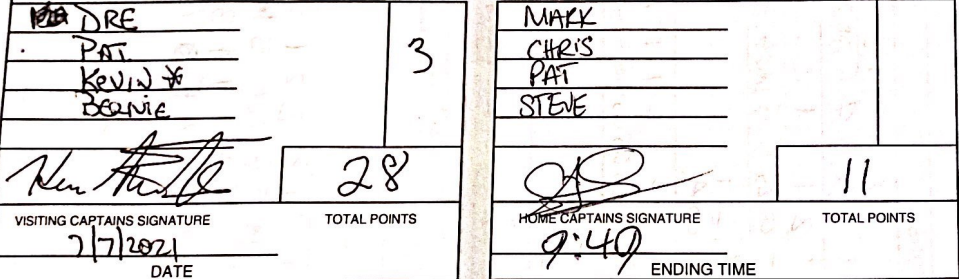 DRE
PAT
3
KEVIN *
BERNIE
28
VISITING CAPTAINS SIGNATURE TOTAL POINTS
7/7/2021
DATE
MARK
CHRIS
PAT
STEVE
11
HOME CAPTAINS SIGNATURE TOTAL POINTS
9:40
ENDING TIME